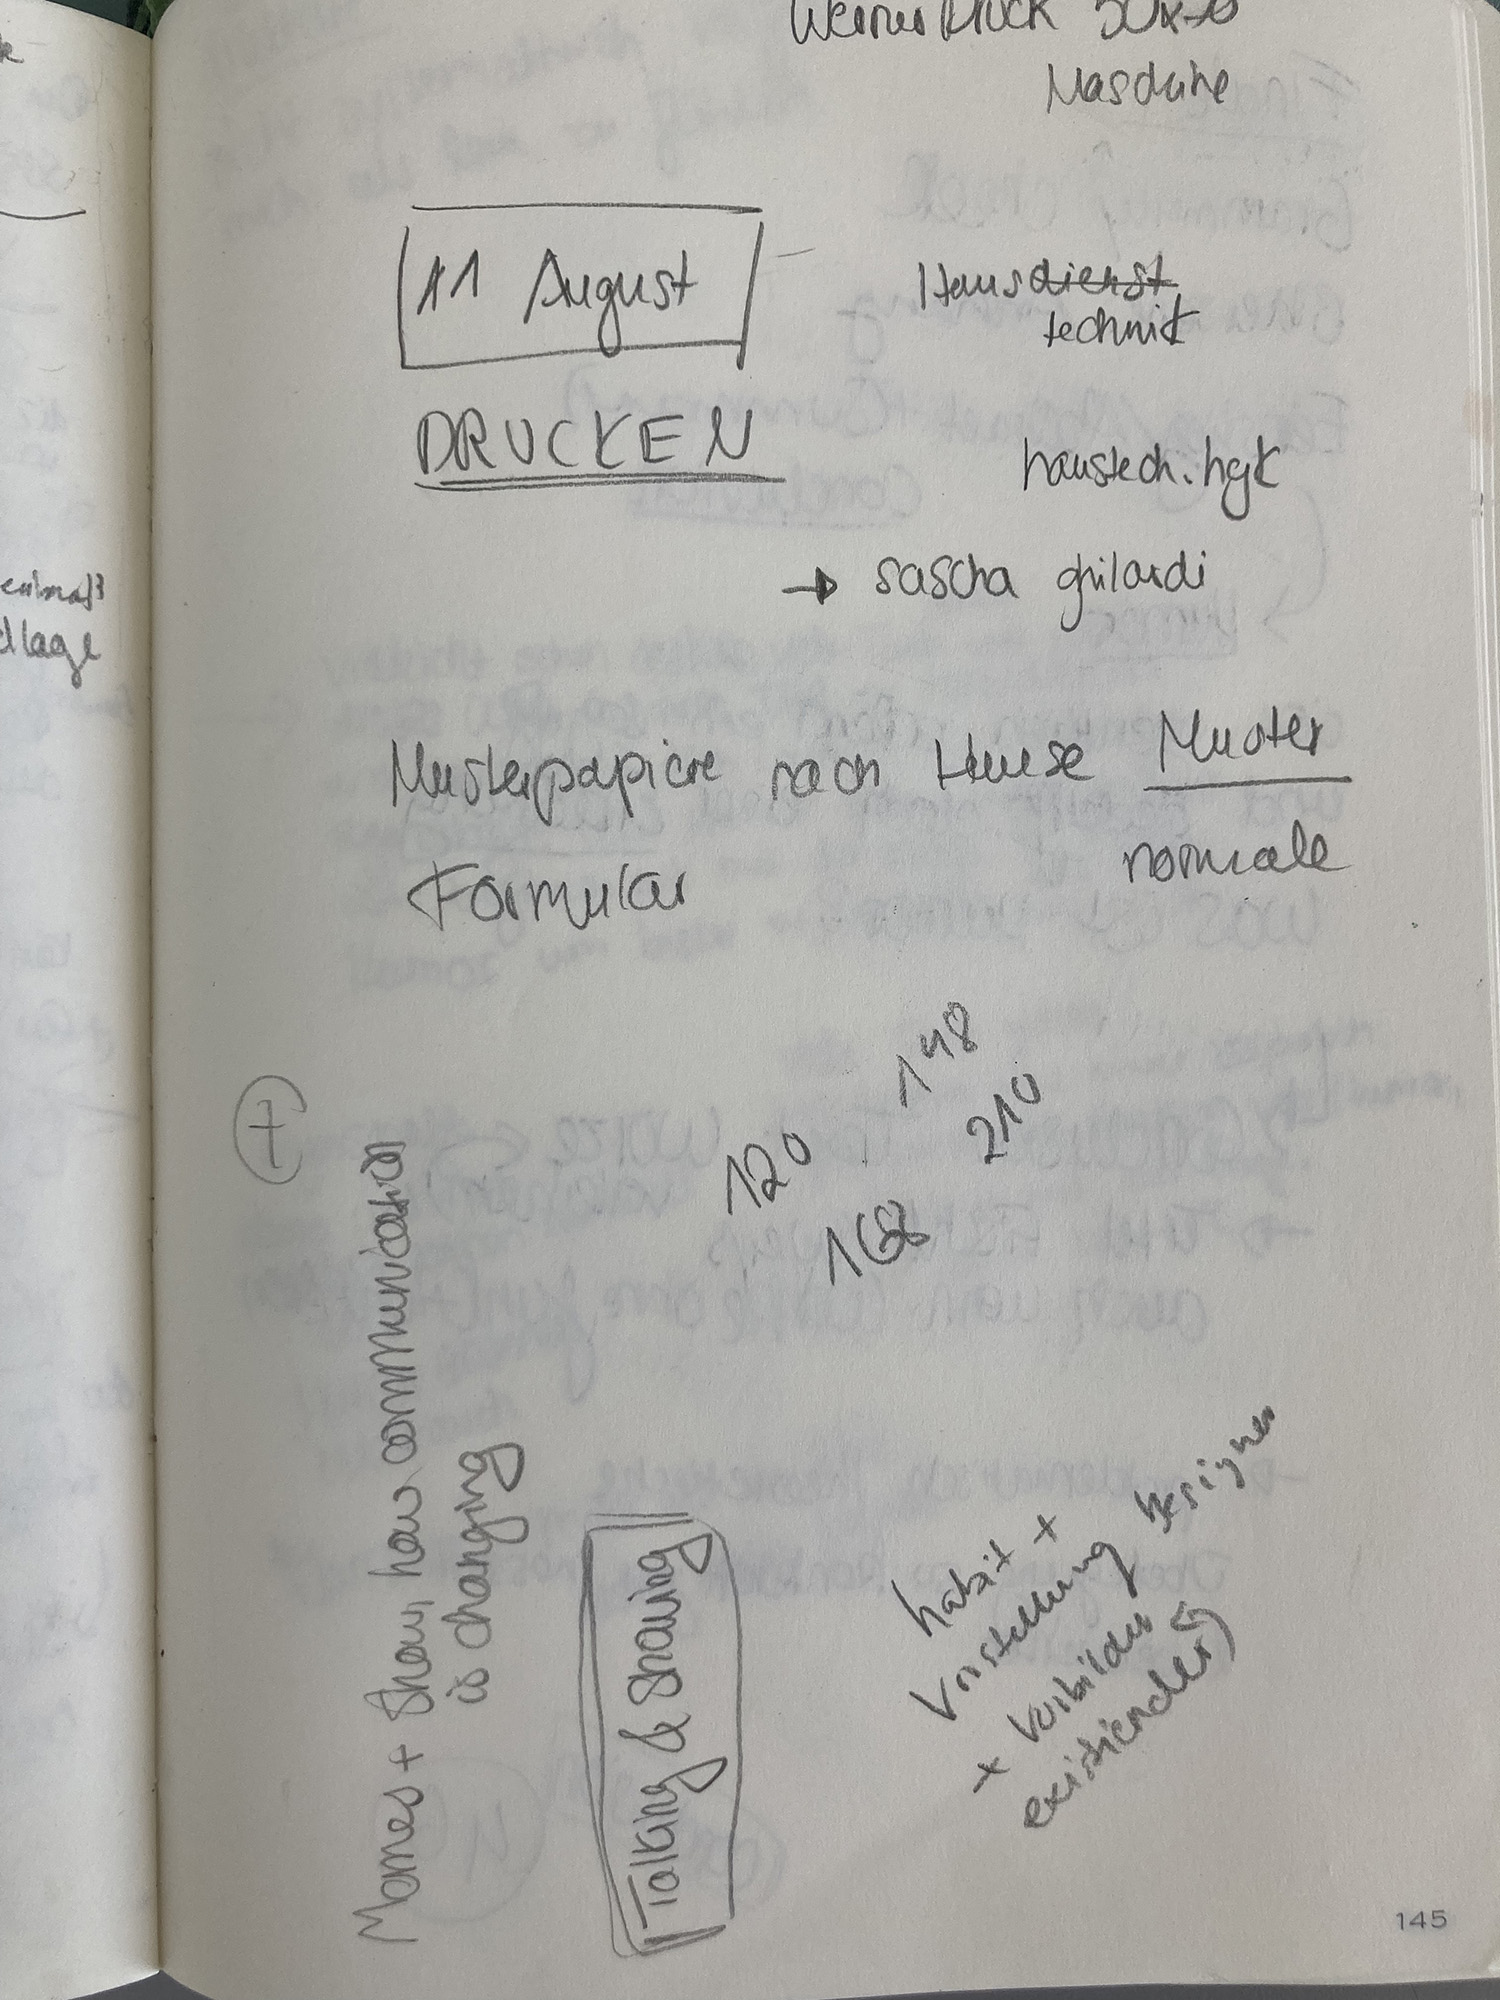 Maschine
11 August
Hausdienst
technik
DRUCKEN
haustech.hgk
→ sascha ghilardi
Musterpapiere nach Hause Muster
normale
Formular
148
210
120
168
+
Memes + Show, how communication
is changing
Talking & Sharing
habit +
Vorstellung Designer
+ Vorbilder
existierender)
dlage
145